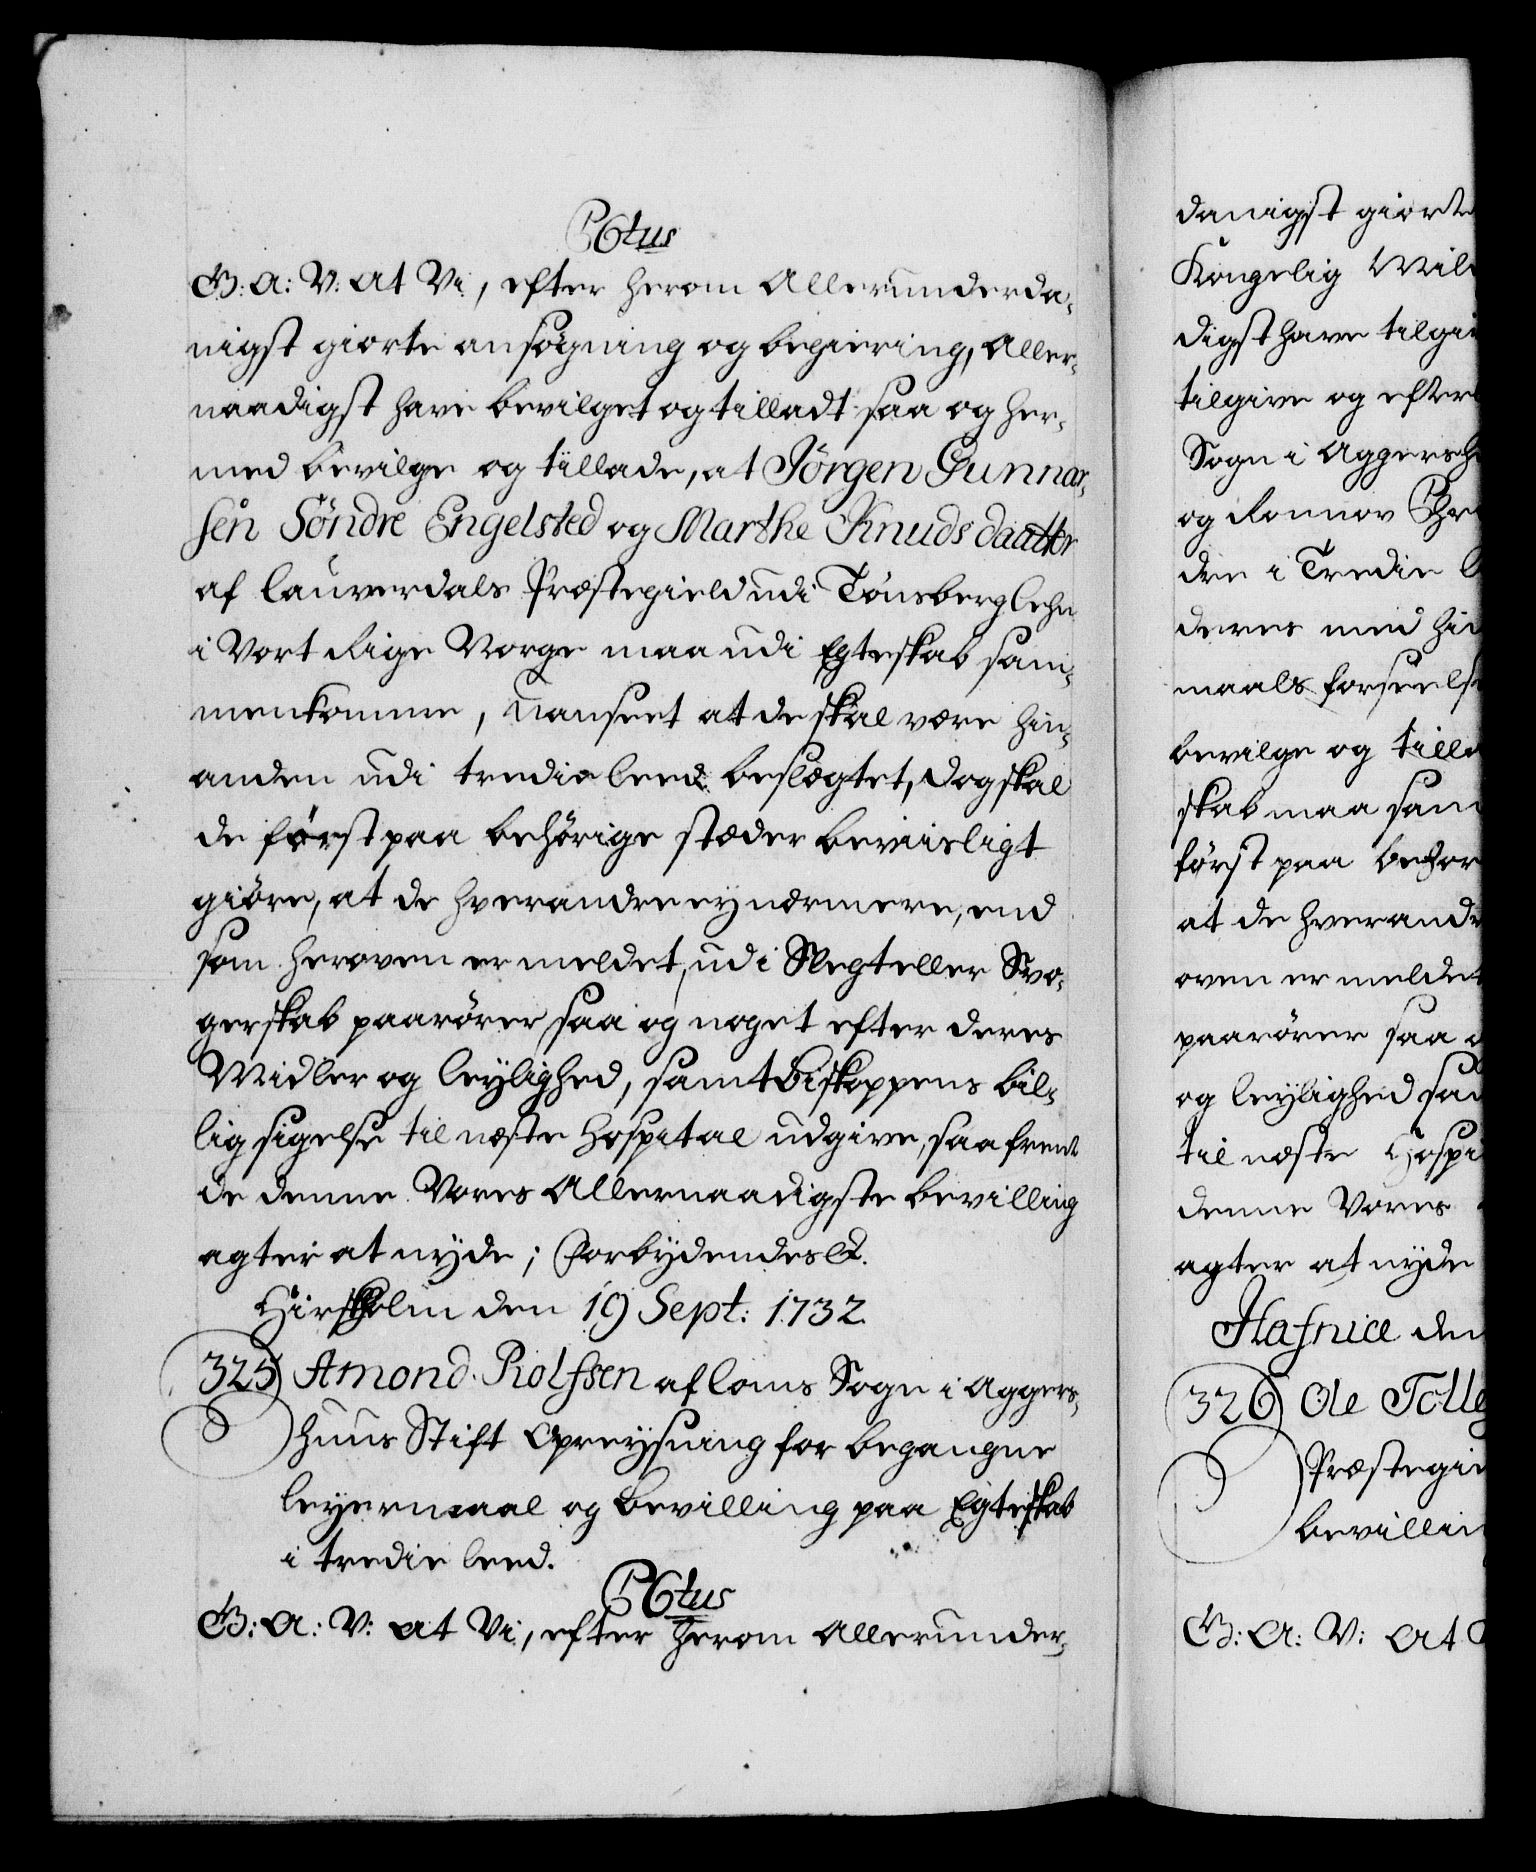 PCtus
G: A: V: At Vi, efter herom Allerunderda-
nigst giorte ansøgning og begiering, Aller-
naadigst have bevilget og tilladt saa og her-
med bevilge og tillade, at Jörgen Gunnar-
sen Söndre Engelsted og Marthe Knuds daatter
af Lauverdals Præstegield udi Tönsberg Lehn
i Vort Rige Norge maa udi Egteskab sam-
menkomme, Uanseet at de skal være hin-
anden udi tredie leed beslægtet, dog skal
de först paa behörige stæder beviisligt
giöre, at de hverandre ey nærmere, end
som heroven er meldet, udi Slegt eller Svo-
gerskab paarörer saa og noget efter deres
Midler og leylighed, samt Biskoppens bil-
lig sigelse til næste Hospital udgive, saafremt
de denne Vores Allernaadigste bevilling
agter at nyde; Forbydendes &.
Hirscholm den 19 Sept: 1732.
325) Amond Rolfssen af Loms Sogn i Aggers-
huus Stift Opreysning for begangne
leyermaal og bevilling paa Egteskab
i tredie leed.
PCtus
G: A: V: At Vi, efter herom Allerunder-
danigst giorte
Kongelig Mil
digst have tilgi
tilgive og efter
Sogn i Aggersh
og Ronnov
dre i Tredie
deres med hin
maals forseelse
bevilge og tilla
skab maa sam
först paa behör
at de hverandr
oven er meldet
paarörer saa o
og leylighed sam
til næste Hospi
denne Vores
agter at nyde
Hafniæ den
326) Ole Tolle
Præstegie
bevillin
G: A: V: At